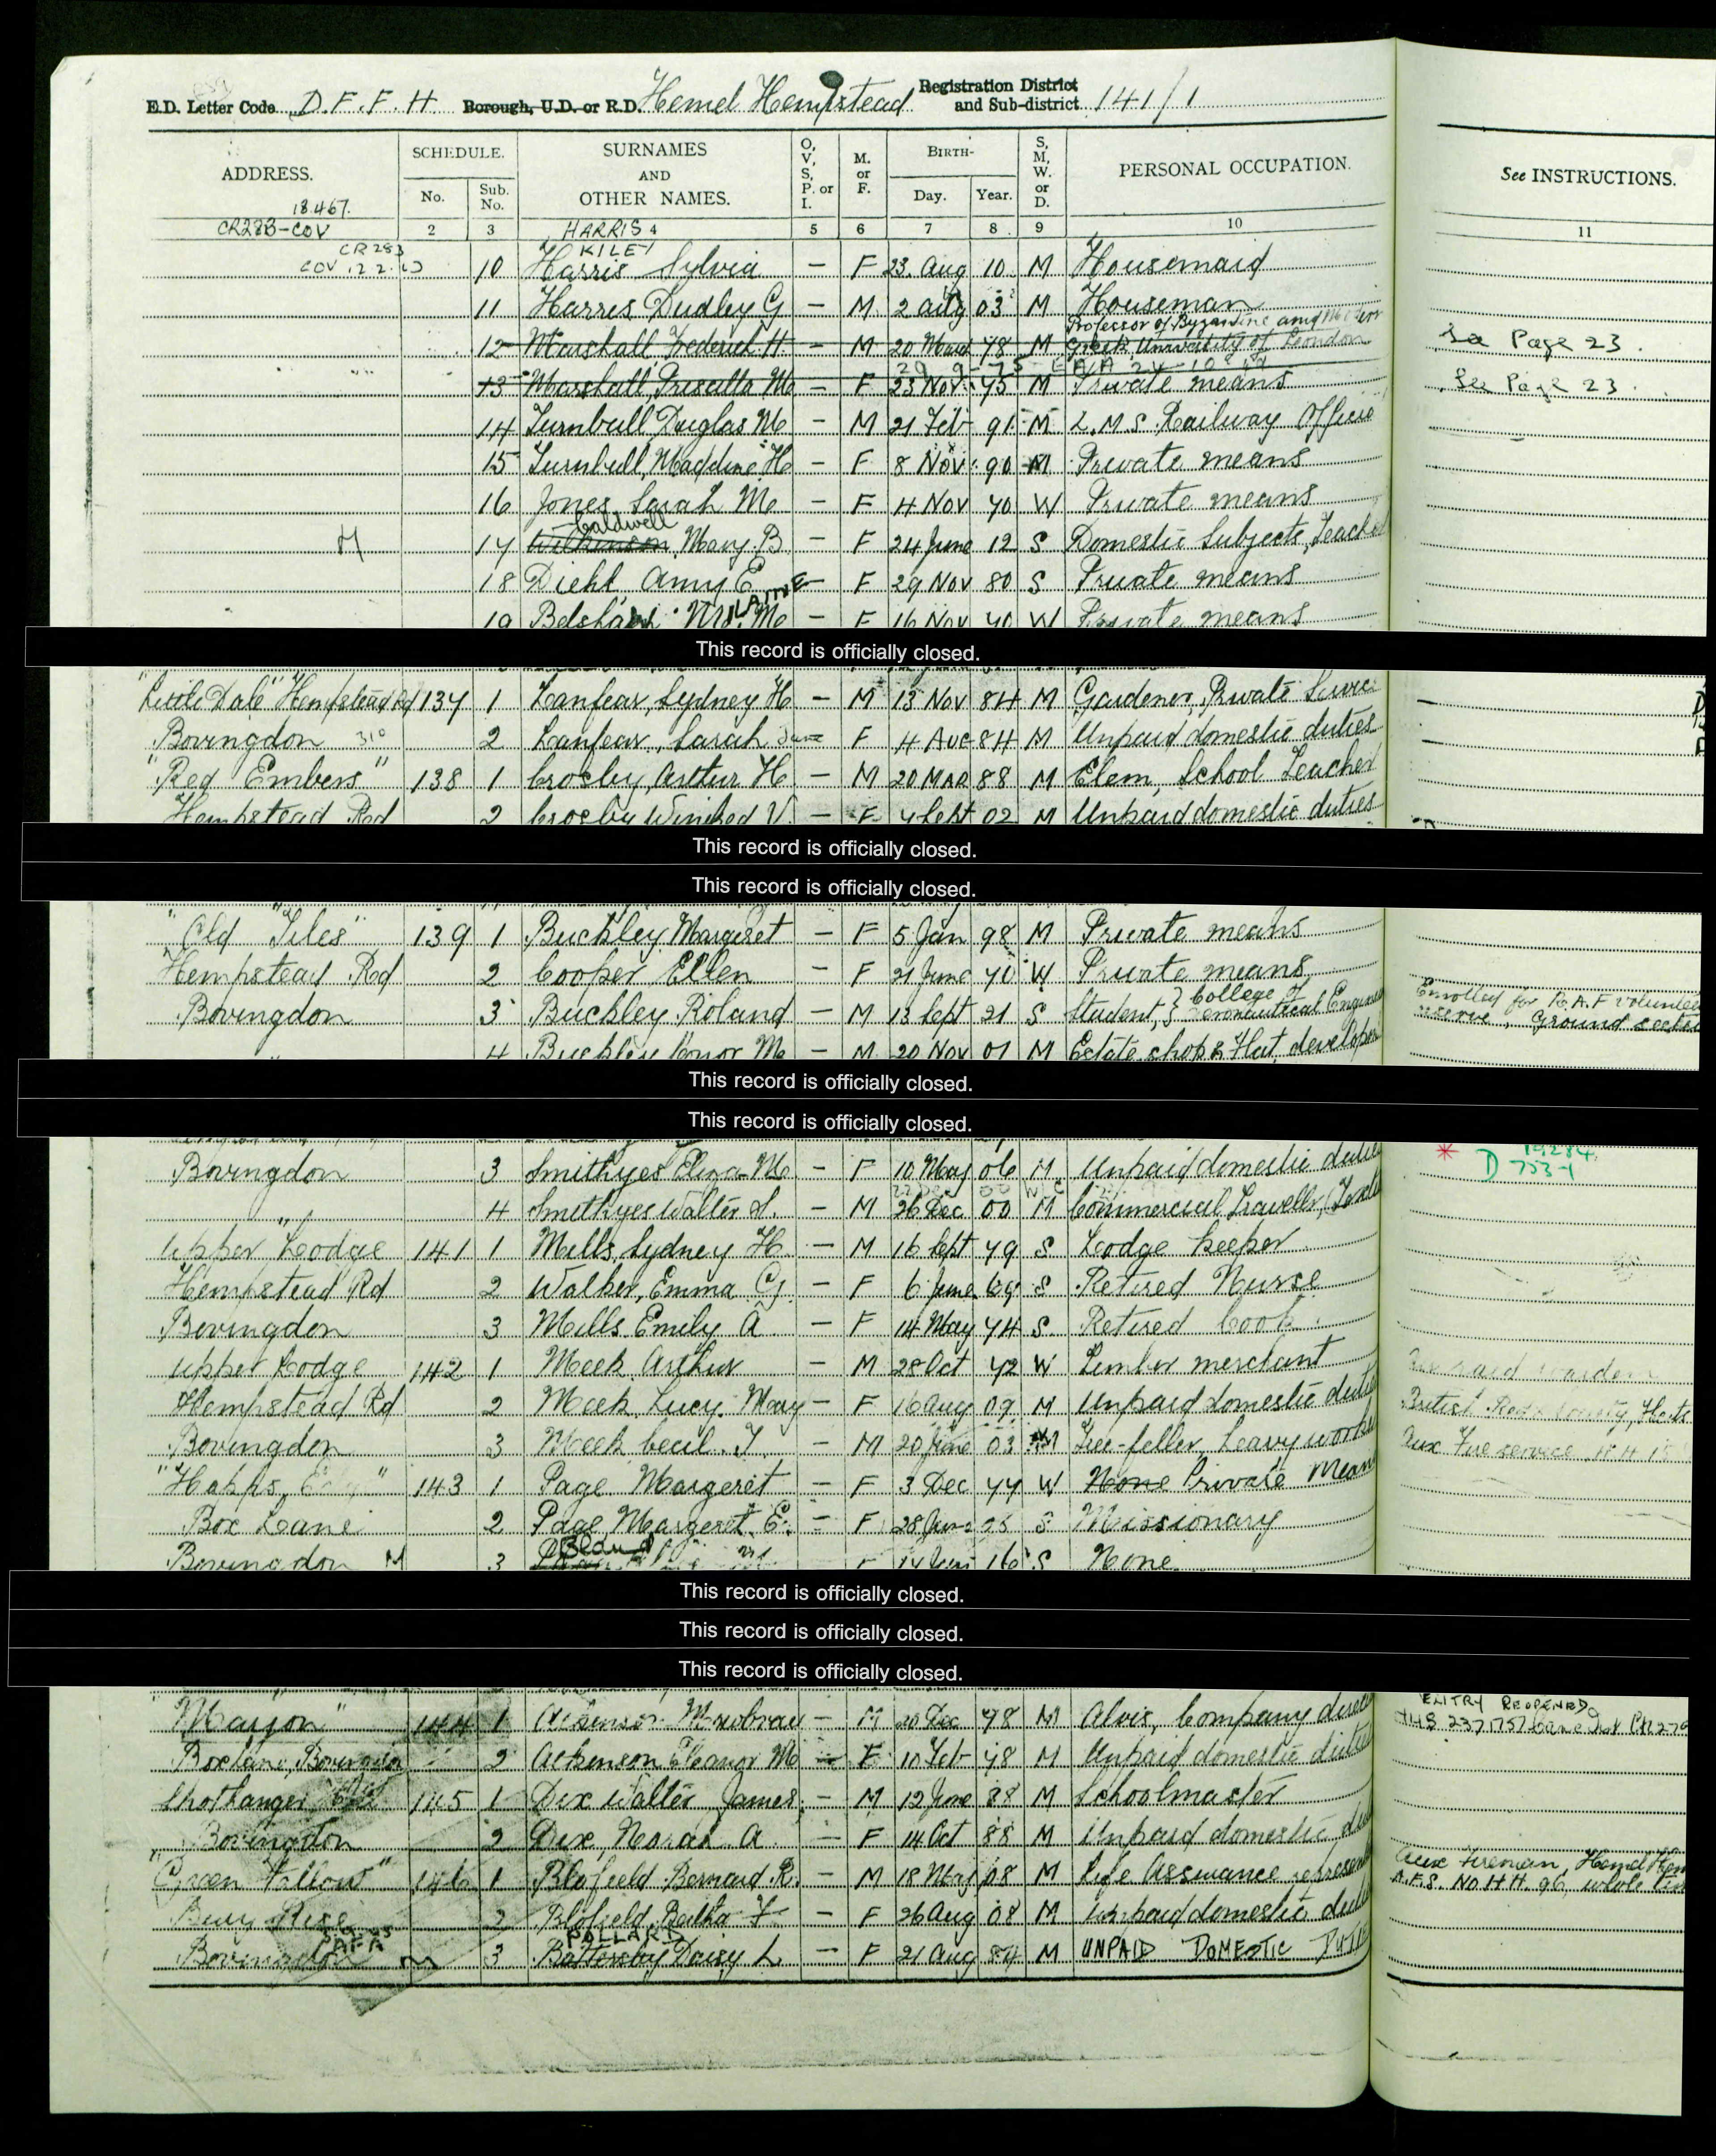 Registration District
E.D. Letter Code D.F.F.H Borough, U.D. or R.D. Hemel Hempstead and Sub-district 141/1
ADDRESS. SCHEDULE. No. Sub. No. SURNAMES AND OTHER NAMES. O, V, S, P. or I. M. or F. BIRTH- Day. Year. S, M, W. or D. PERSONAL OCCUPATION. See INSTRUCTIONS.
18.467.
CR283-COV 2 3 HARRIS 4 5 6 7 8 9 10 11
CR 283
COV
10 Harris Sylvia — F 23 Aug 10 M Housemaid
11 Harris Dudley G — M 2 Aug 03 M Houseman
Professor of Byzantine and Modern
12 Marshall Frederick H — M 20 March 78 M Greek University of London See Page 23.
13 Marshall, Priscilla M — F 23 Nov 75 M Private means See Page 23.
14 Turnbull Douglas M — M 21 Feb 91 M L.M.S. Railway Officer
15 Turnbull, Madeline H — F 8 Nov 90 M Private means
16 Jones Sarah M — F 4 Nov 70 W Private means
Caldwell
M 17 Wilkinson, Mary B — F 24 June 12 S Domestic Subjects, Teacher
18 Diehl, Amy E — F 29 Nov 80 S Private means
19 M — F 16 Nov 40 W Private means
This record is officially closed.
"Little Dale" Hempstead Rd 137 1 Lanfear, Sydney H — M 13 Nov 84 M Gardener, Private Service
Bovingdon 2 Lanfear, Sarah Jane F 4 AUG 84 M Unpaid domestic duties
"Red Embers" 138 1 Crosby, Arthur H. — M 20 MAR 88 M Elem. School Teacher
Hempstead Rd 2 Crosby Winifred V. — F 7 Sept 02 M Unpaid domestic duties
This record is officially closed.
This record is officially closed.
"Old Tiles" 139 1 Buckley Margaret — F 5 Jan 98 M Private means
Hempstead Rd 2 Cooper Ellen — F 21 June 70 W Private means
Bovingdon 3 Buckley Roland — M 13 Sept 21 S Student, } College of Aeronautical Engineer Enrolled for R.A.F volunteer reserve, Ground section
" 4 Buckley Conor M — M 20 Nov 01 M Estate, shop & Flat developer
This record is officially closed.
This record is officially closed.
Bovingdon 3 Smithyes Eliza M. — F 10 May 06 M Unpaid domestic duties * D 753-1
" 4 Smithyes Walter S. — M 26 Dec 00 M Commercial Traveller,
Upper Lodge 141 1 Mills, Sydney H. — M 16 Sept 79 S Lodge keeper
Hempstead Rd 2 Walker, Emma G. — F 6 June 69 S Retired Nurse
Bovingdon 3 Mills Emily A — F 14 May 74 S Retired Cook
Upper Lodge 142 1 Meek Arthur — M 28 Oct 72 W Timber merchant
Hempstead Rd 2 Meek, Lucy May — F 16 Aug 09 M Unpaid domestic duties British Red x Society, Herts
Bovingdon 3 Meek Cecil J — M 20 June 03 M Tree-feller, heavy worker Aux Fire service
143 1 Page Margeret — F 3 Dec 77 W None Private Means
Box Lane 2 Page Margeret E. — F 28 S Missionary
Bovingdon M 3 16 S None
This record is officially closed.
This record is officially closed.
This record is officially closed.
ENTRY REOPENED
144 1 Mowbray — M 20 Dec 98 M Alvis, Company director
Boxlane, Bovingdon 2 Atkinson Eleanor M — F 10 Feb 98 M Unpaid domestic duties
Shothanger 145 1 Dix Walter James — M 12 June 88 M Schoolmaster
Bovingdon 2 Dix, Norah A. — F 14 Oct 88 M Unpaid domestic duties
146 1 Blofield Bernard R. — M 18 May 08 M Life Assurance represent Aux Fireman, Hemel Hem A.F.S. No HH. 96, whole time
2 Blofield, Bertha F — F 26 Aug 08 M Unpaid domestic duties
POLLARD
Bovingdon M 3 Battersby Daisy L — F 21 Aug 84 M UNPAID DOMESTIC DUTIES